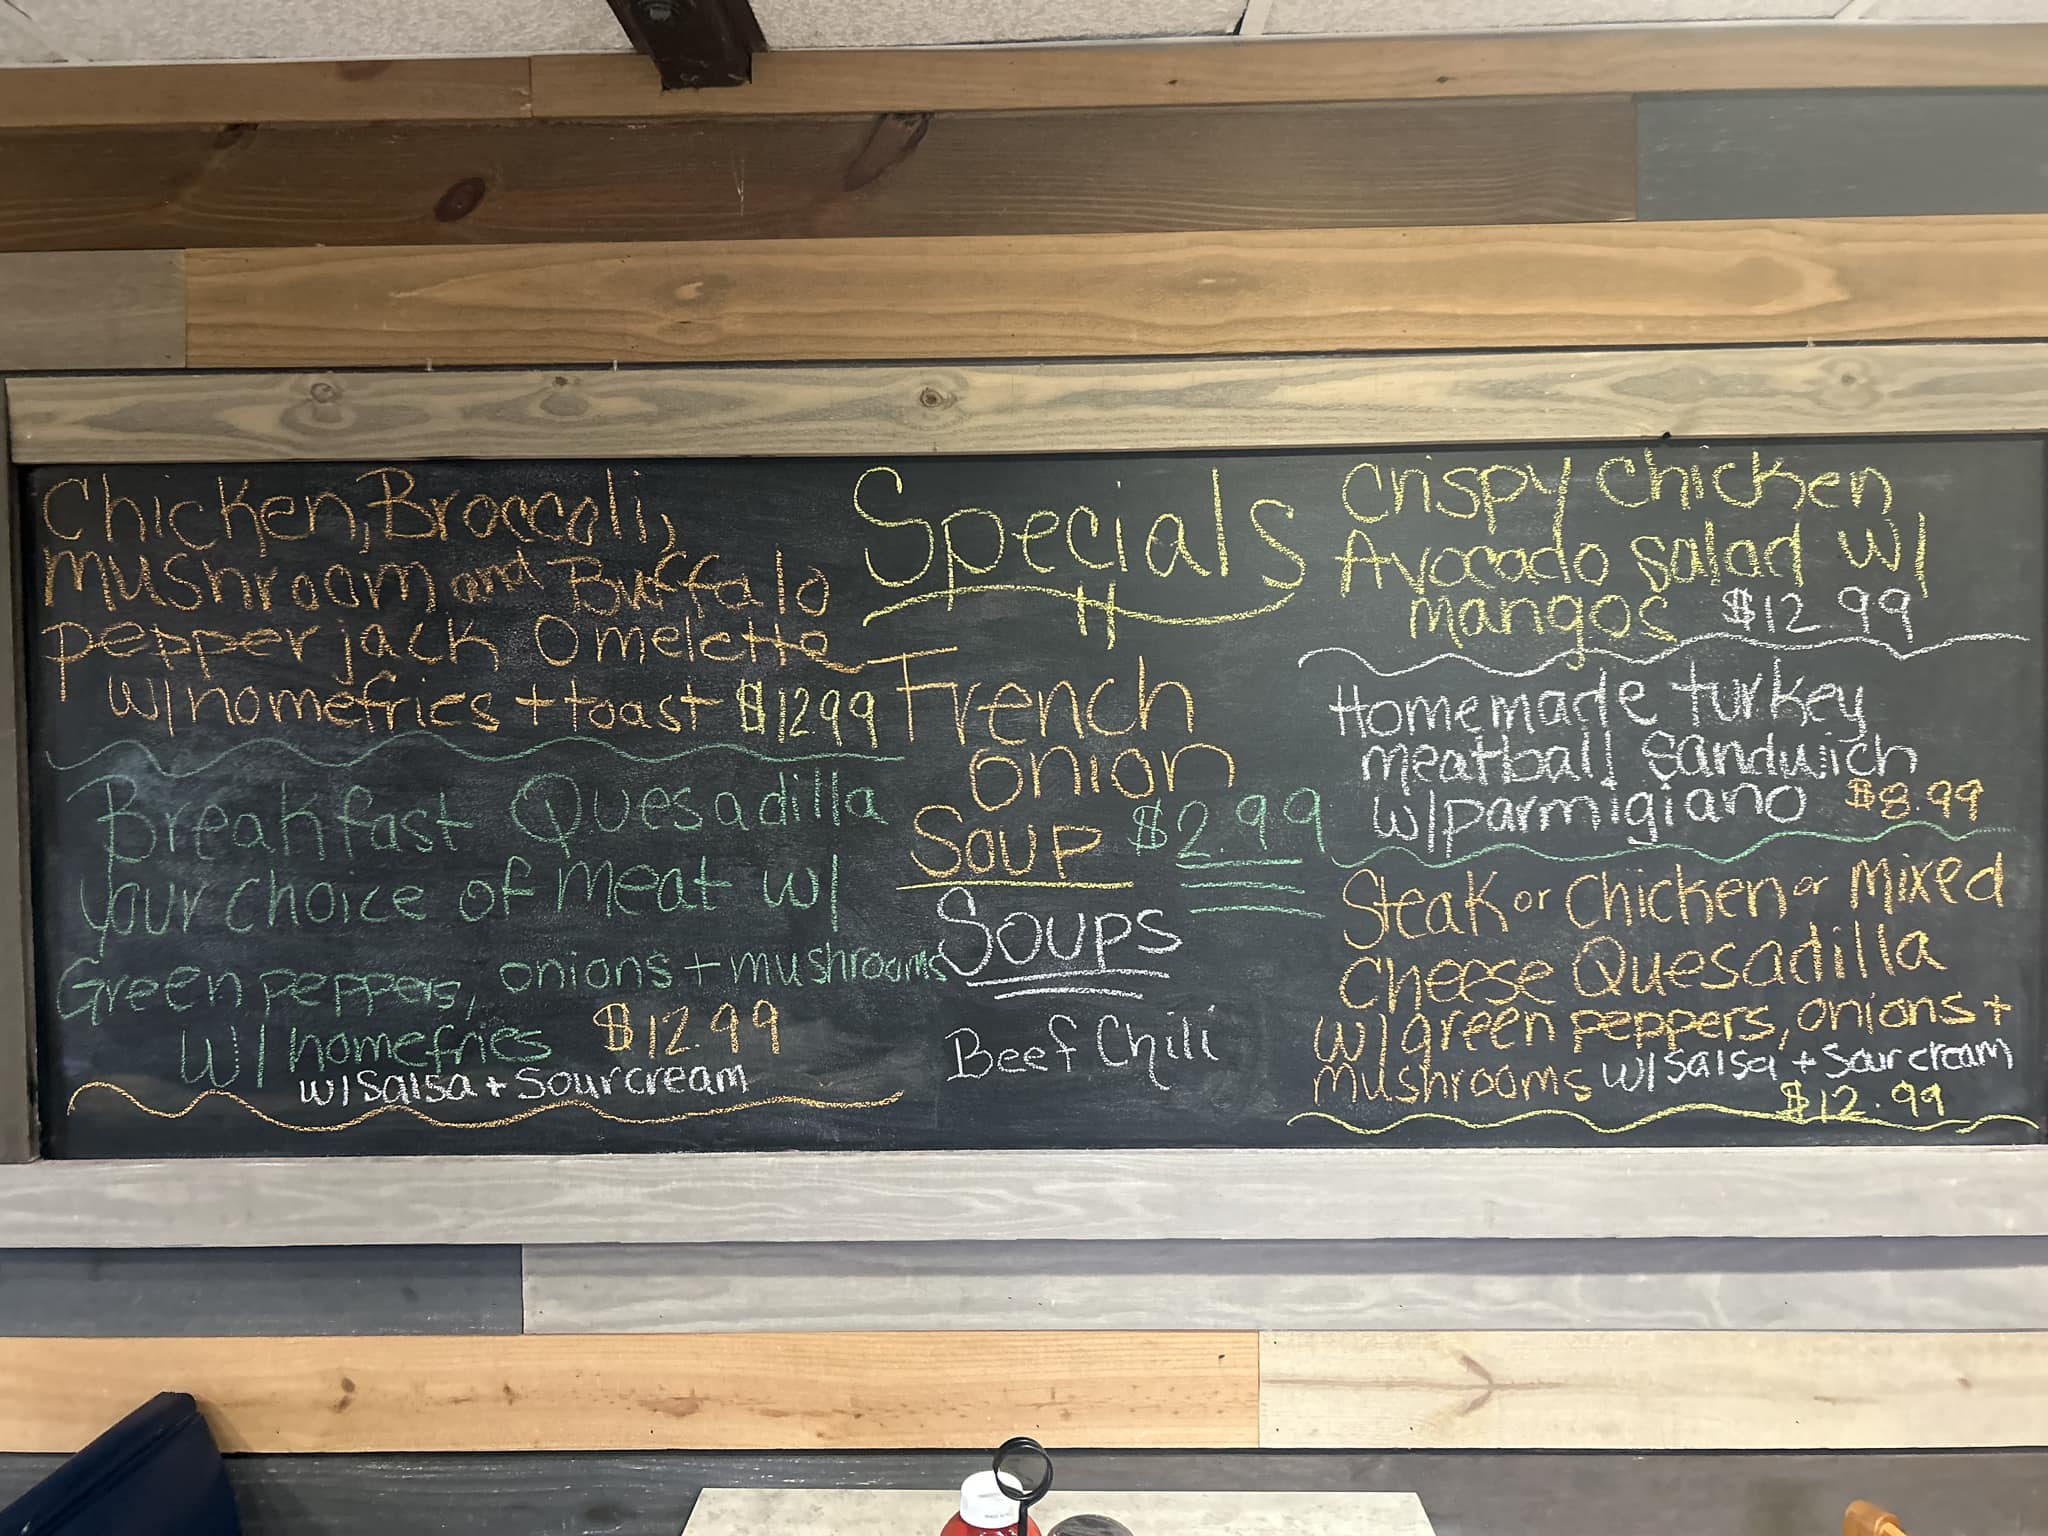 Chicken, Broccoli,
mushroom and Buffalo
pepper jack Omelette
w/homefries + toast $12.99
Breakfast Quesadilla
your choice of meat w/
Green peppers, onions + mushrooms
w/ homefries $12.99
w/ Salsa + Sour cream
Specials
French
onion
Soup $2.99
Soups
Beef Chili
Crispy Chicken
Avocado salad w/
mangos $12.99
Homemade turkey
meatball sandwich
w/parmigiano $8.99
Steak or Chicken or Mixed
Cheese Quesadilla
w/green peppers, onions +
mushrooms w/ Salsa + Sour cream
$12.99